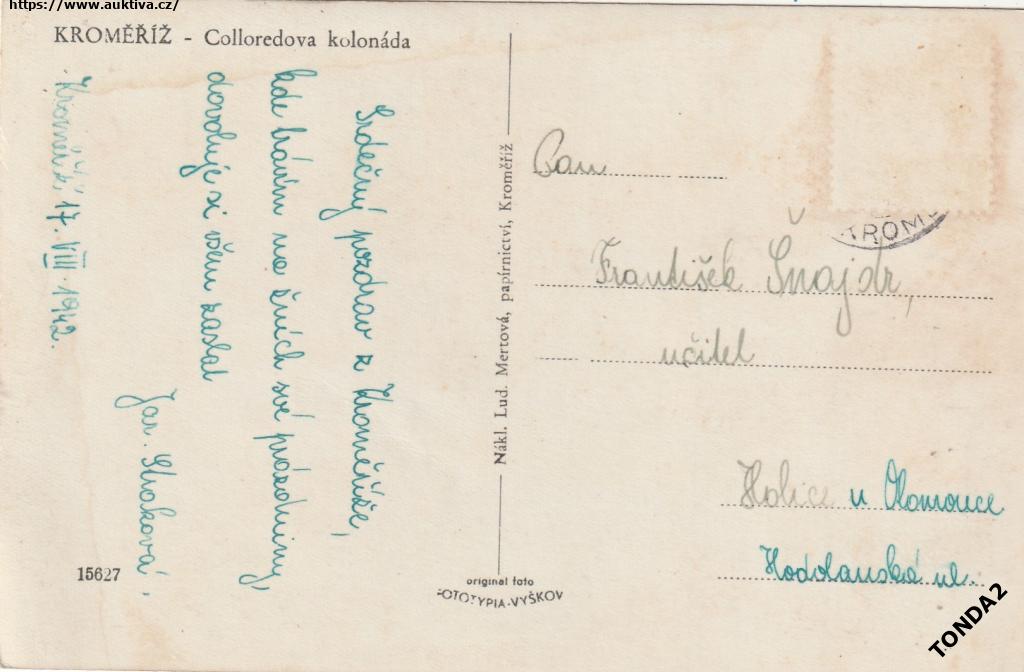 https://www.auktiva.cz/
KROMĚŘÍŽ - Colloredova kolonáda
Kroměříž, 17. VIII. 1942.
Srdečný pozdrav z Kroměříže,
kde trávím na žních své prázdniny,
dovoluje si všem zaslat
Jar. Straková.
15627
Nákl. Lud. Mertová, papírnictví, Kroměříž
original foto
FOTOTYPIA-VYŠKOV
KROM
Pan
František Šnajdr,
učitel
Holice u Olomouce
Hodolanská ul.
TONDA2